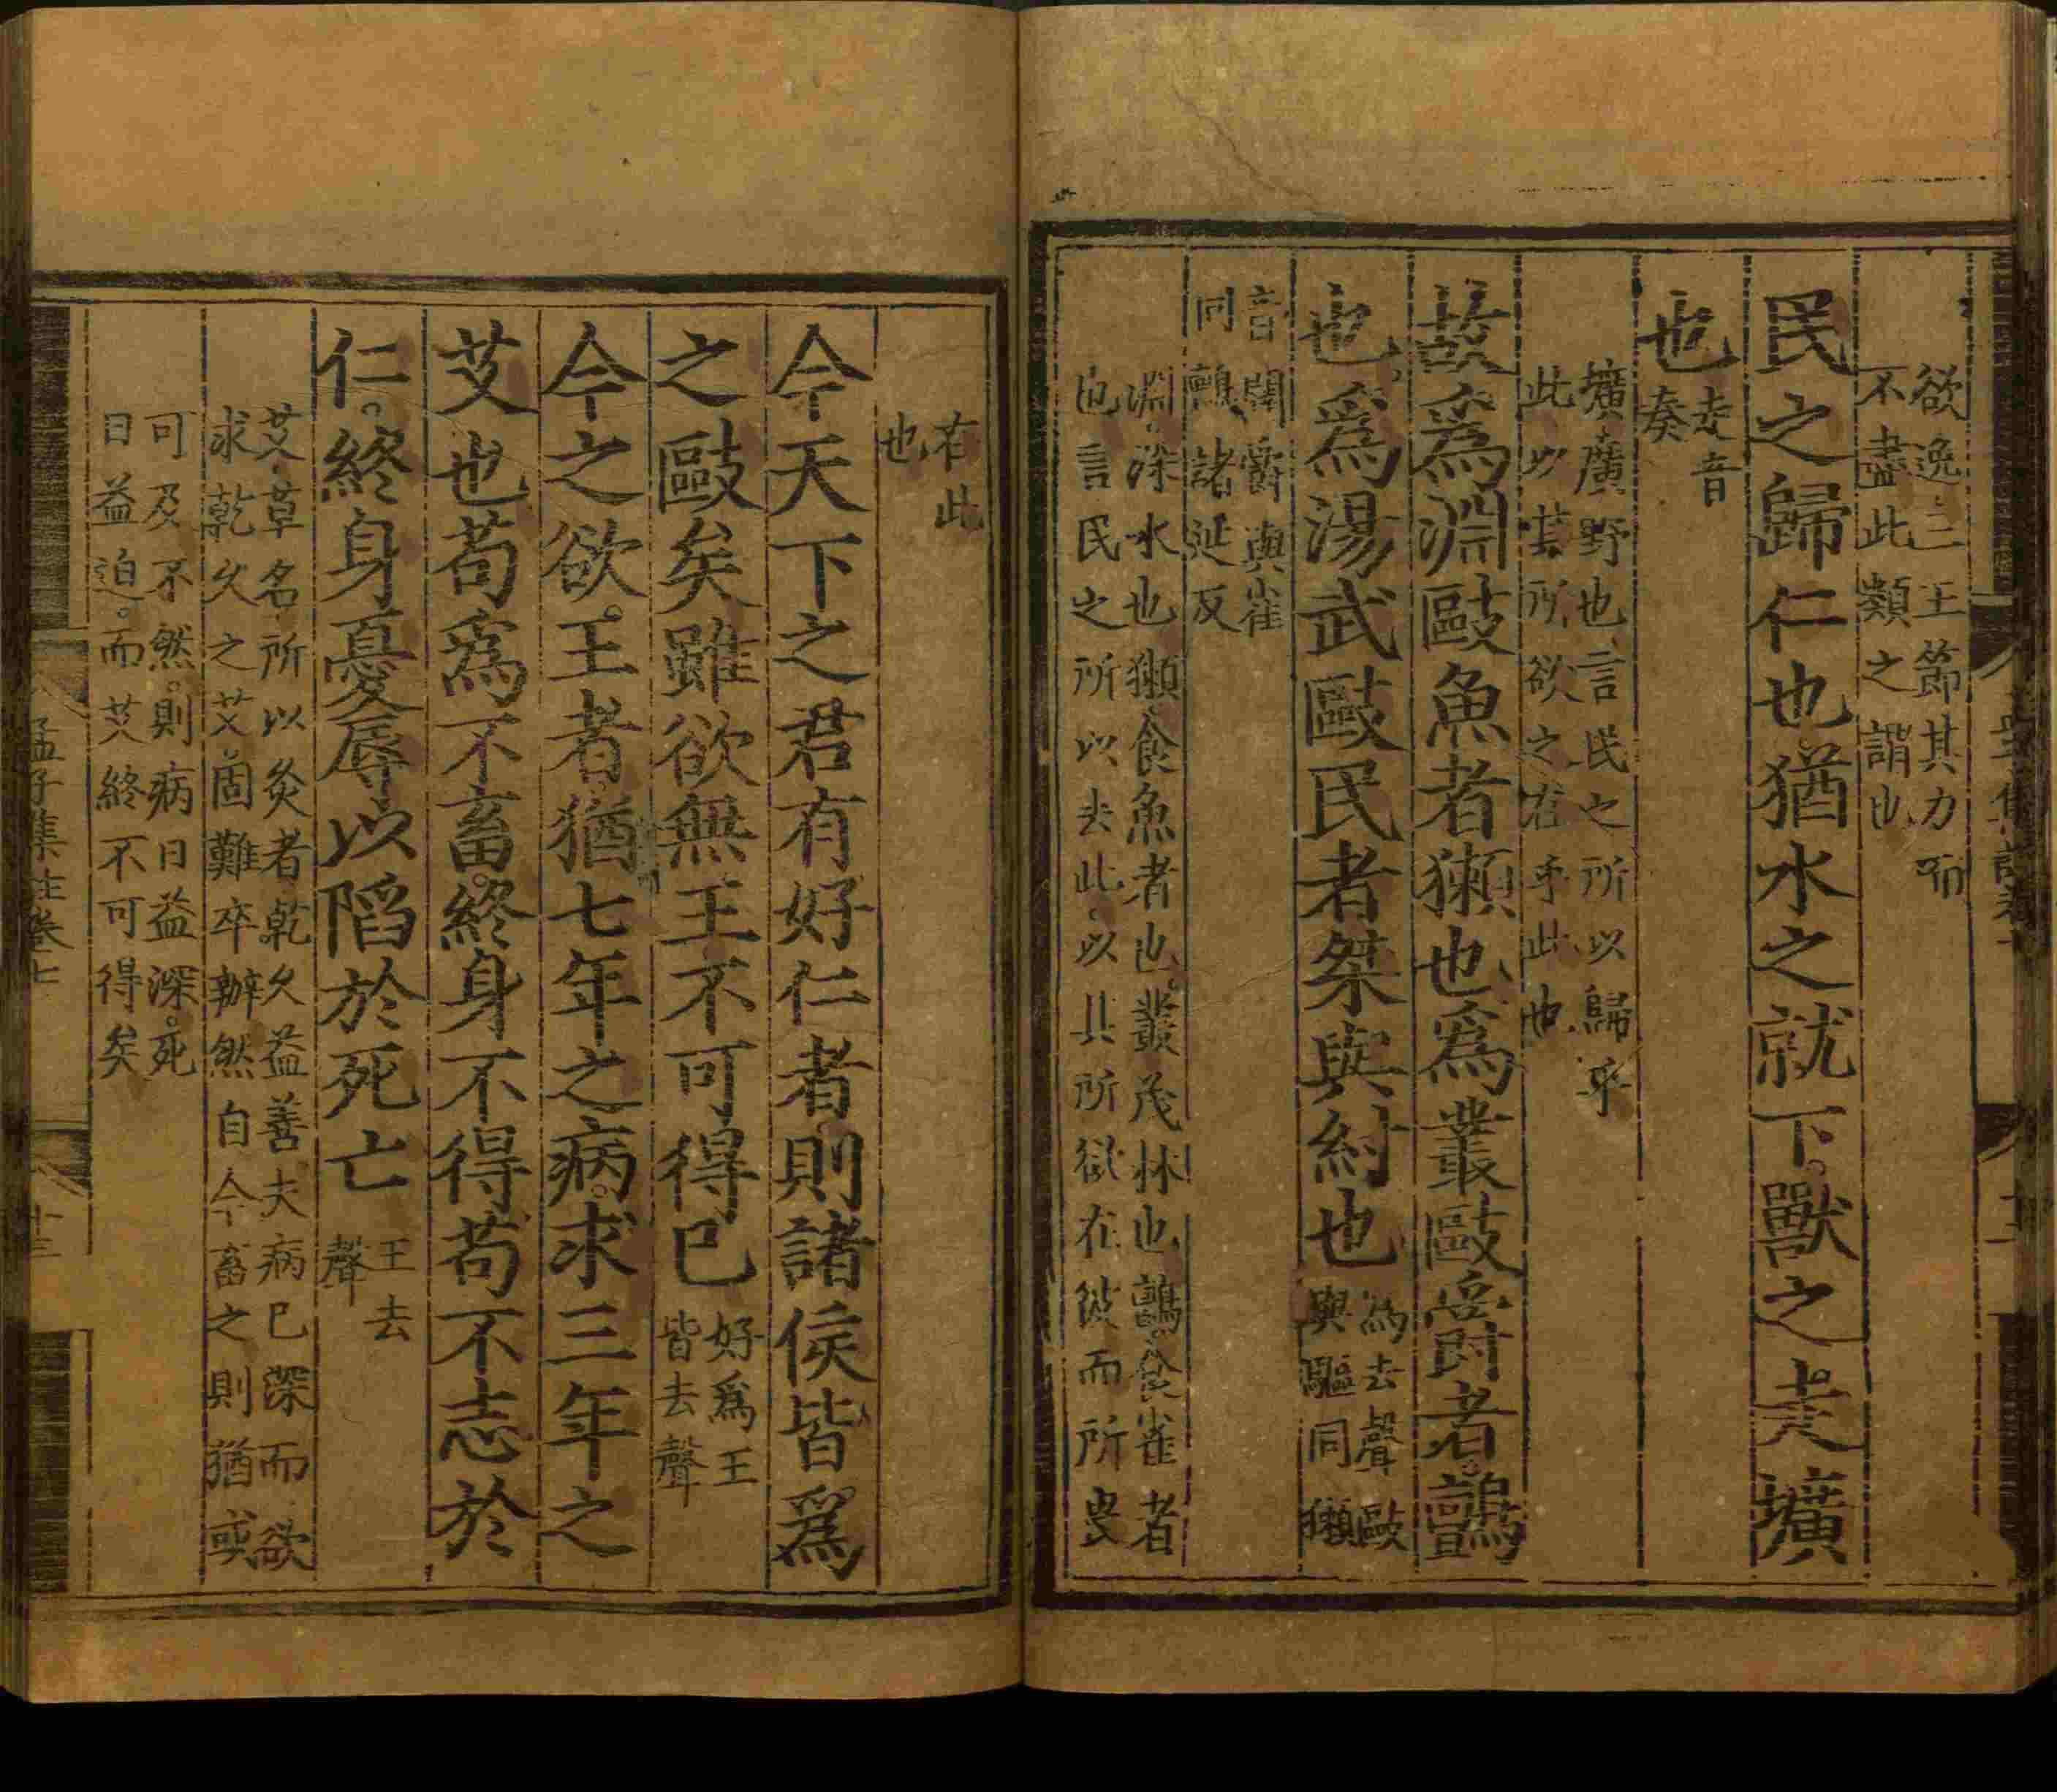 欲逸三王節其力而
不盡此類之謂也
民之歸仁也猶水之就下獸之走壙
也
走音
奏
壙廣野也言民之所以歸乎
此以其所欲之在乎此也
故爲淵敺魚者獺也爲叢敺爵者鸇
也爲湯武敺民者桀與紂也
爲去聲敺
與驅同獺
音闥爵與雀
同鸇諸延反
淵深水也獺食魚者也叢茂林也鸇食雀者
也言民之所以去此以其所欲在彼而所畏
在此
也
今天下之君有好仁者則諸侯皆爲
之敺矣雖欲無王不可得已
好爲王
皆去聲
今之欲王者猶七年之病求三年之
艾也苟爲不畜終身不得苟不志於
仁終身憂辱以陷於死亡
王去
聲
艾草名所以灸者乾久益善夫病已深而欲
求乾久之艾固難卒辦然自今畜之則猶或
可及不然則病日益深死
日益迫而艾終不可得矣
孟子集註卷七
十三